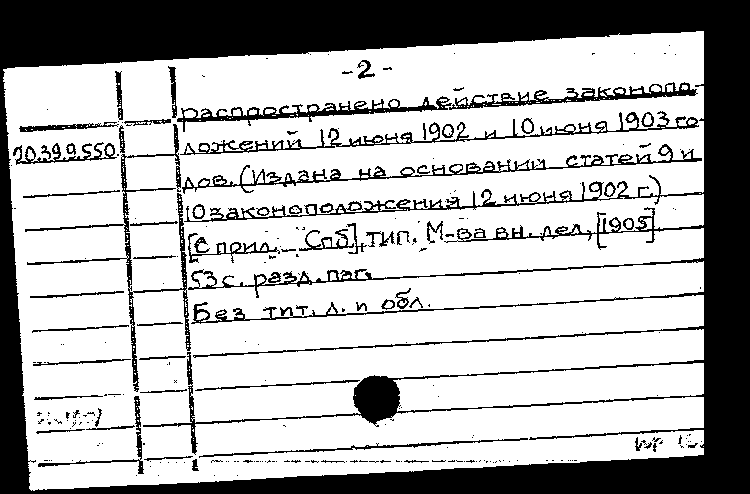 -2-
распространено действие законопо-
20.39.9.550
ложений 12 июня 1902 и 10 июня 1903 го-
дов. (Издана на основании статей 9 и
10 законоположений 12 июня 1902 г.)
[С прил. Спб], тип. М-ва вн. дел, [1905].
53 с. разд. паг.
Без тит. л. и обл.